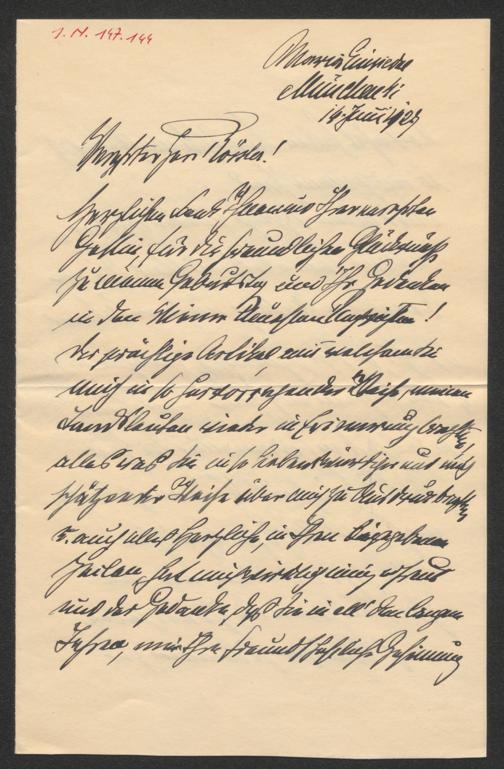 J. N. 147.144
Maria Einsiedel
München
14. Juni 1927
Verehrter Herr Rössler!
Herzlichen Dank Ihnen und Ihrer verehrten
Gattin, für die freundlichen Glückwünsche
zu meinem Geburtstag und Ihr Gedenken
in den Wiener Neuesten Nachrichten!
Der prächtige Artikel mit welchem Sie
mich in so hervorragender Weise, meinen
Landsleuten wieder in Erinnerung brachten,
alles was Sie in so liebenswürdiger und mich
schätzender Weise über mich zu Ausdruck brachten
u. auch alles Herzliche, in Ihren beigegebenen
Zeilen, hat mich wirklich innig erfreut
und der Gedanke, daß Sie in all' den langen
Jahren, mir Ihre freundschaftliche Gesinnung